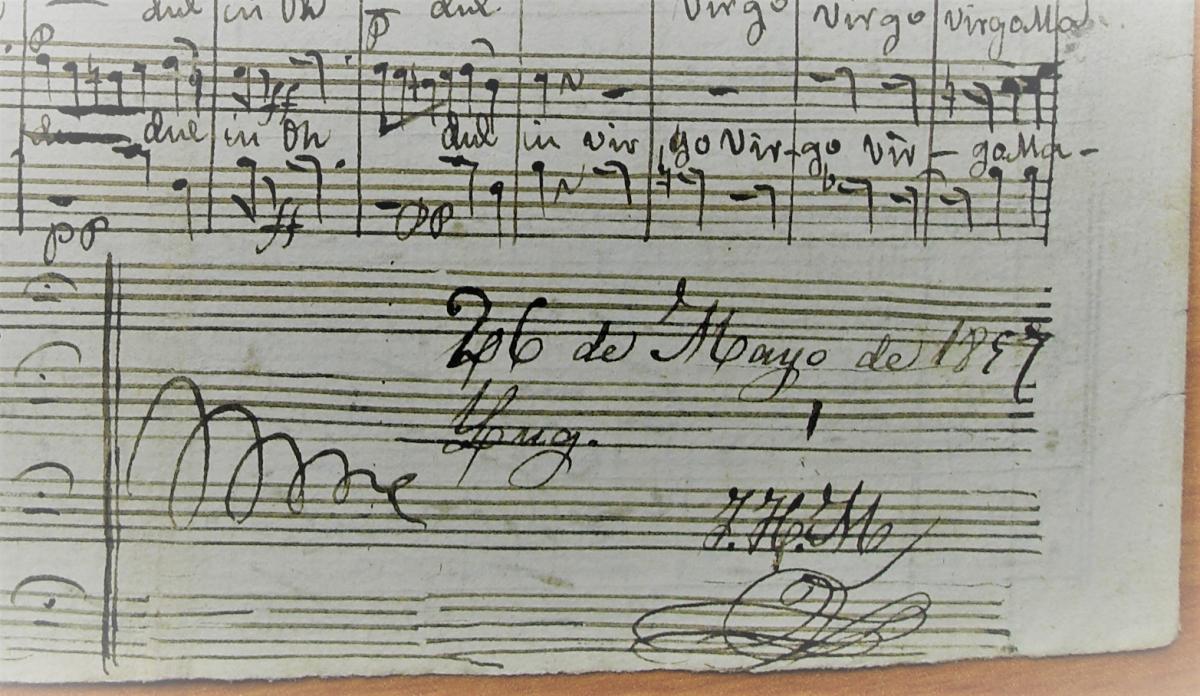 dul in Oh dul Virgo Virgo Virgo Ma
p p
ff
dul in Oh dul in vir go Vir-go Vir - go Ma-
pp ff pp
26 de Mayo de 1857
J.H.M